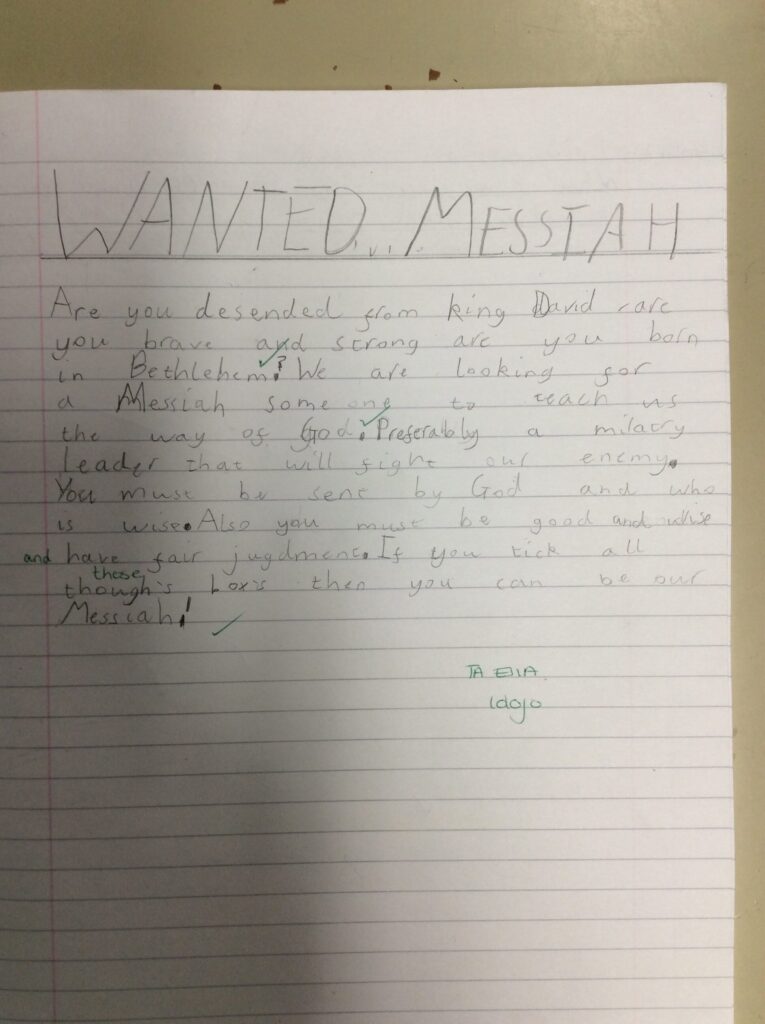 WANTED... MESSIAH
Are you desended from king David are
you brave and strong are you born
in Bethlehem? We are looking for
a Messiah some one to teach us
the way of God. Preferably a milatry
leader that will fight our enemy.
You must be sent by God and who
is wise. Also you must be good and
and have fair jugdment. If you tick all
those
though's box's then you can be our
Messiah!
TA Ella
1dojo